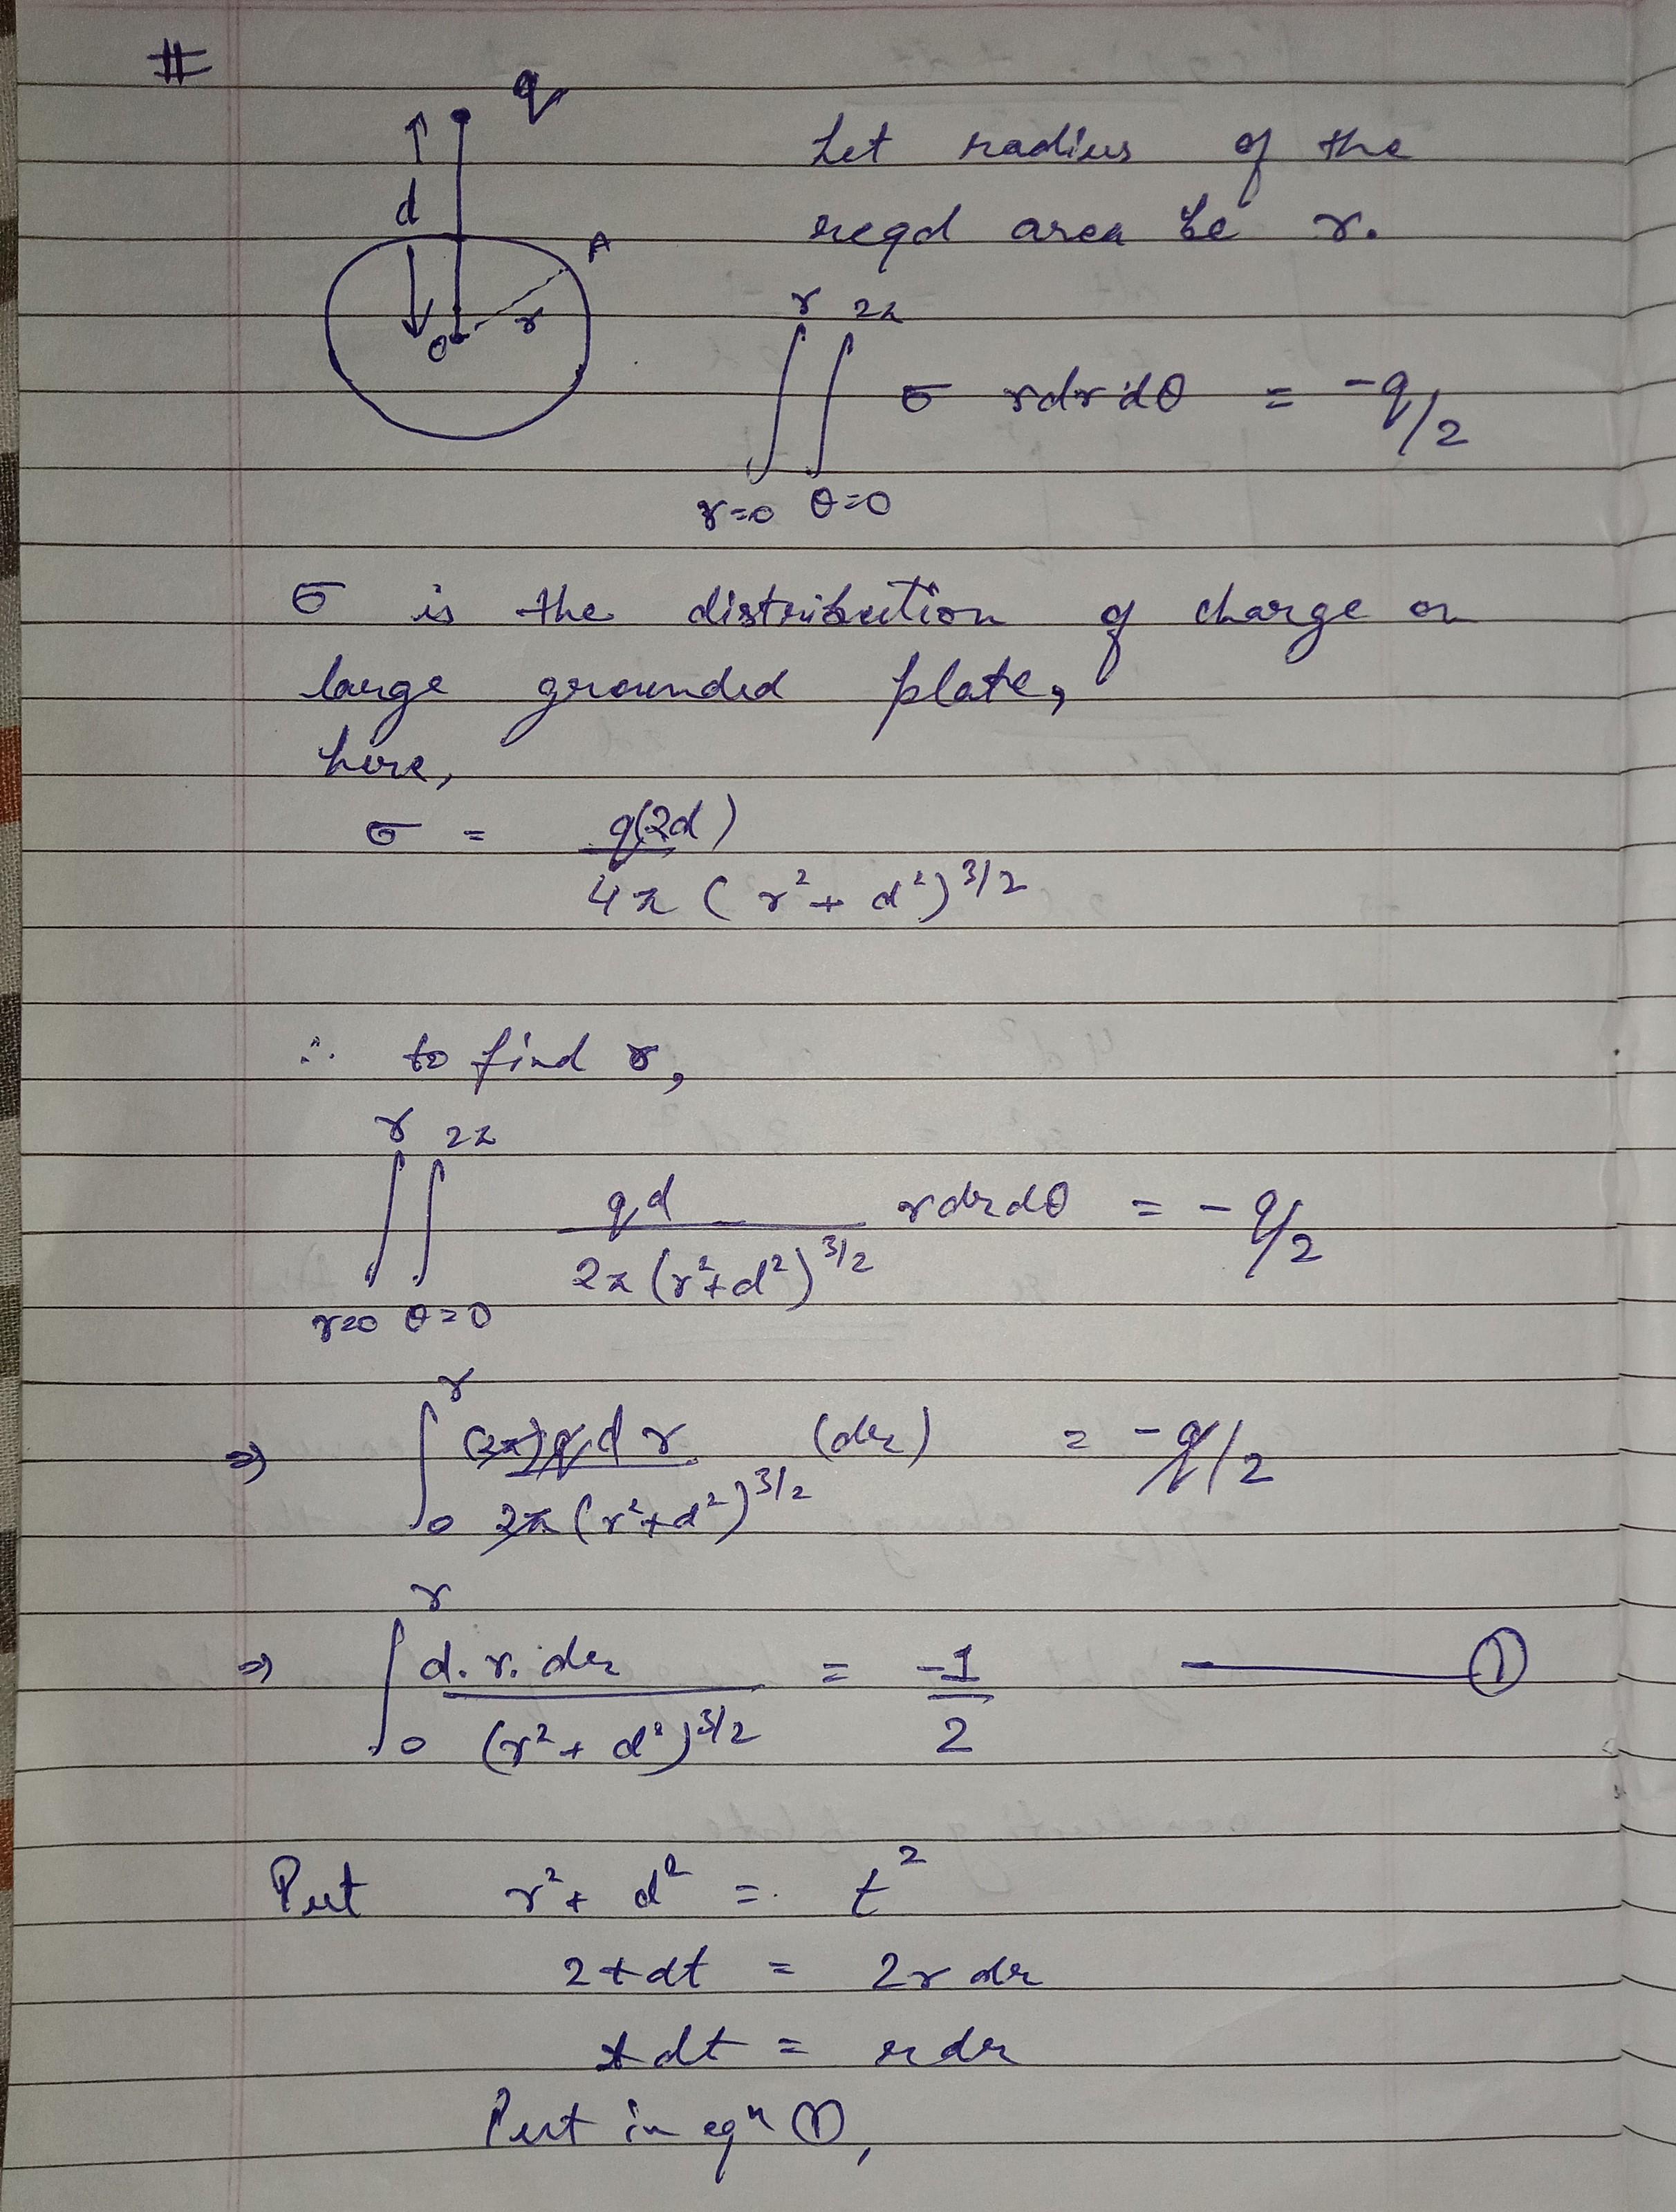 #
q
d
A
O
r
Let radius of the
reqd area be r.
r 2π
∫∫ σ rdrdθ = -q/2
r=0 θ=0
σ is the distribution of charge on
large grounded plate,
here,
σ = q(2d)
4π (r²+ d²)^3/2
∴ to find r,
r 2π
∫∫ qd rdrdθ = -q/2
2π (r²+d²)^3/2
r=0 θ=0
⇒ ∫ (2π)q d r (dr) = -q/2
r
0 2π (r²+d²)^3/2
r
⇒ ∫ d.r.dr = -1 ①
0 (r²+ d²)^3/2 2
Put r²+ d² = t²
2tdt = 2r dr
tdt = rdr
Put in eqn ①,